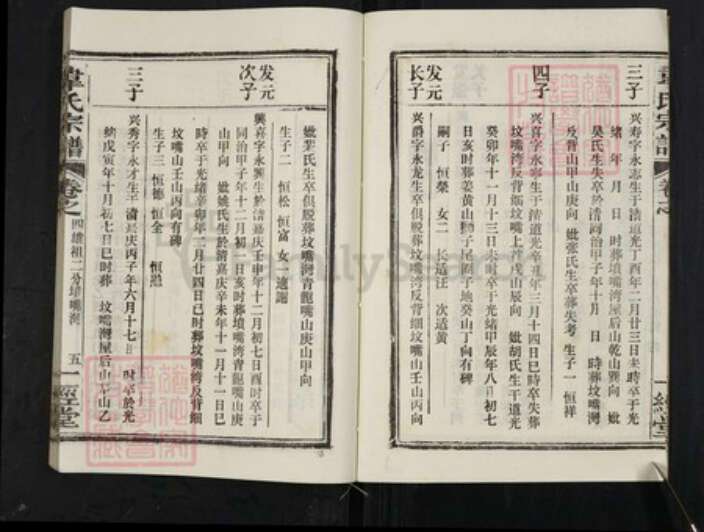 韋氏宗譜
卷之
一經堂
三子
兴寿字永志生于清道光丁酉年二月廿三日未時卒于光
緒 年 月 日 时葬墳嘴湾屋后山乾山巽向 妣
吴氏生失卒於清同治甲子年十月 日 時葬坟嘴湾
反背山甲山庚向 妣张氏生卒葬失考 生子一 恒祥
四子
兴喜字永寧生于清道光辛丑年三月十四日巳時卒失葬
坟嘴湾反背细坟嘴上 戌山辰向 妣胡氏生于道光
癸卯年十一月十三日未时卒于光緒甲辰年八月初七
日亥时葬姜黄山狮子尾圈子地癸山丁向有碑
嗣子 恒榮 女二 长适汪 次适黄
发元
长子
兴爵字永龙生卒俱脱葬坟嘴湾反背细坟嘴山壬山丙向
妣葉氏生卒俱脱葬 坟嘴灣青龍嘴山庚山甲向
生子二 恒松 恒富 女一 適謝
发元
次子
興喜字永興生於清嘉庆壬申年十二月初七日酉时卒于
同治甲子年十二月初二日亥时葬墳嘴湾青龍嘴山庚
山甲向 妣姚氏生於清嘉庆辛未年十一月十一日巳
時卒于光绪辛卯年二月廿四日巳时葬坟嘴湾反背细
坟嘴山壬山丙向有碑
生子三 恒德 恒全 恒
三子
兴秀字永才生于清嘉庆丙子年六月十七 日 时卒於光
緒戊寅年十月初七日巳时葬 坟嘴灣屋后山 山乙
韋氏宗譜
卷之
四維祖二分墳嘴灣
五
一經堂
FamilySearch